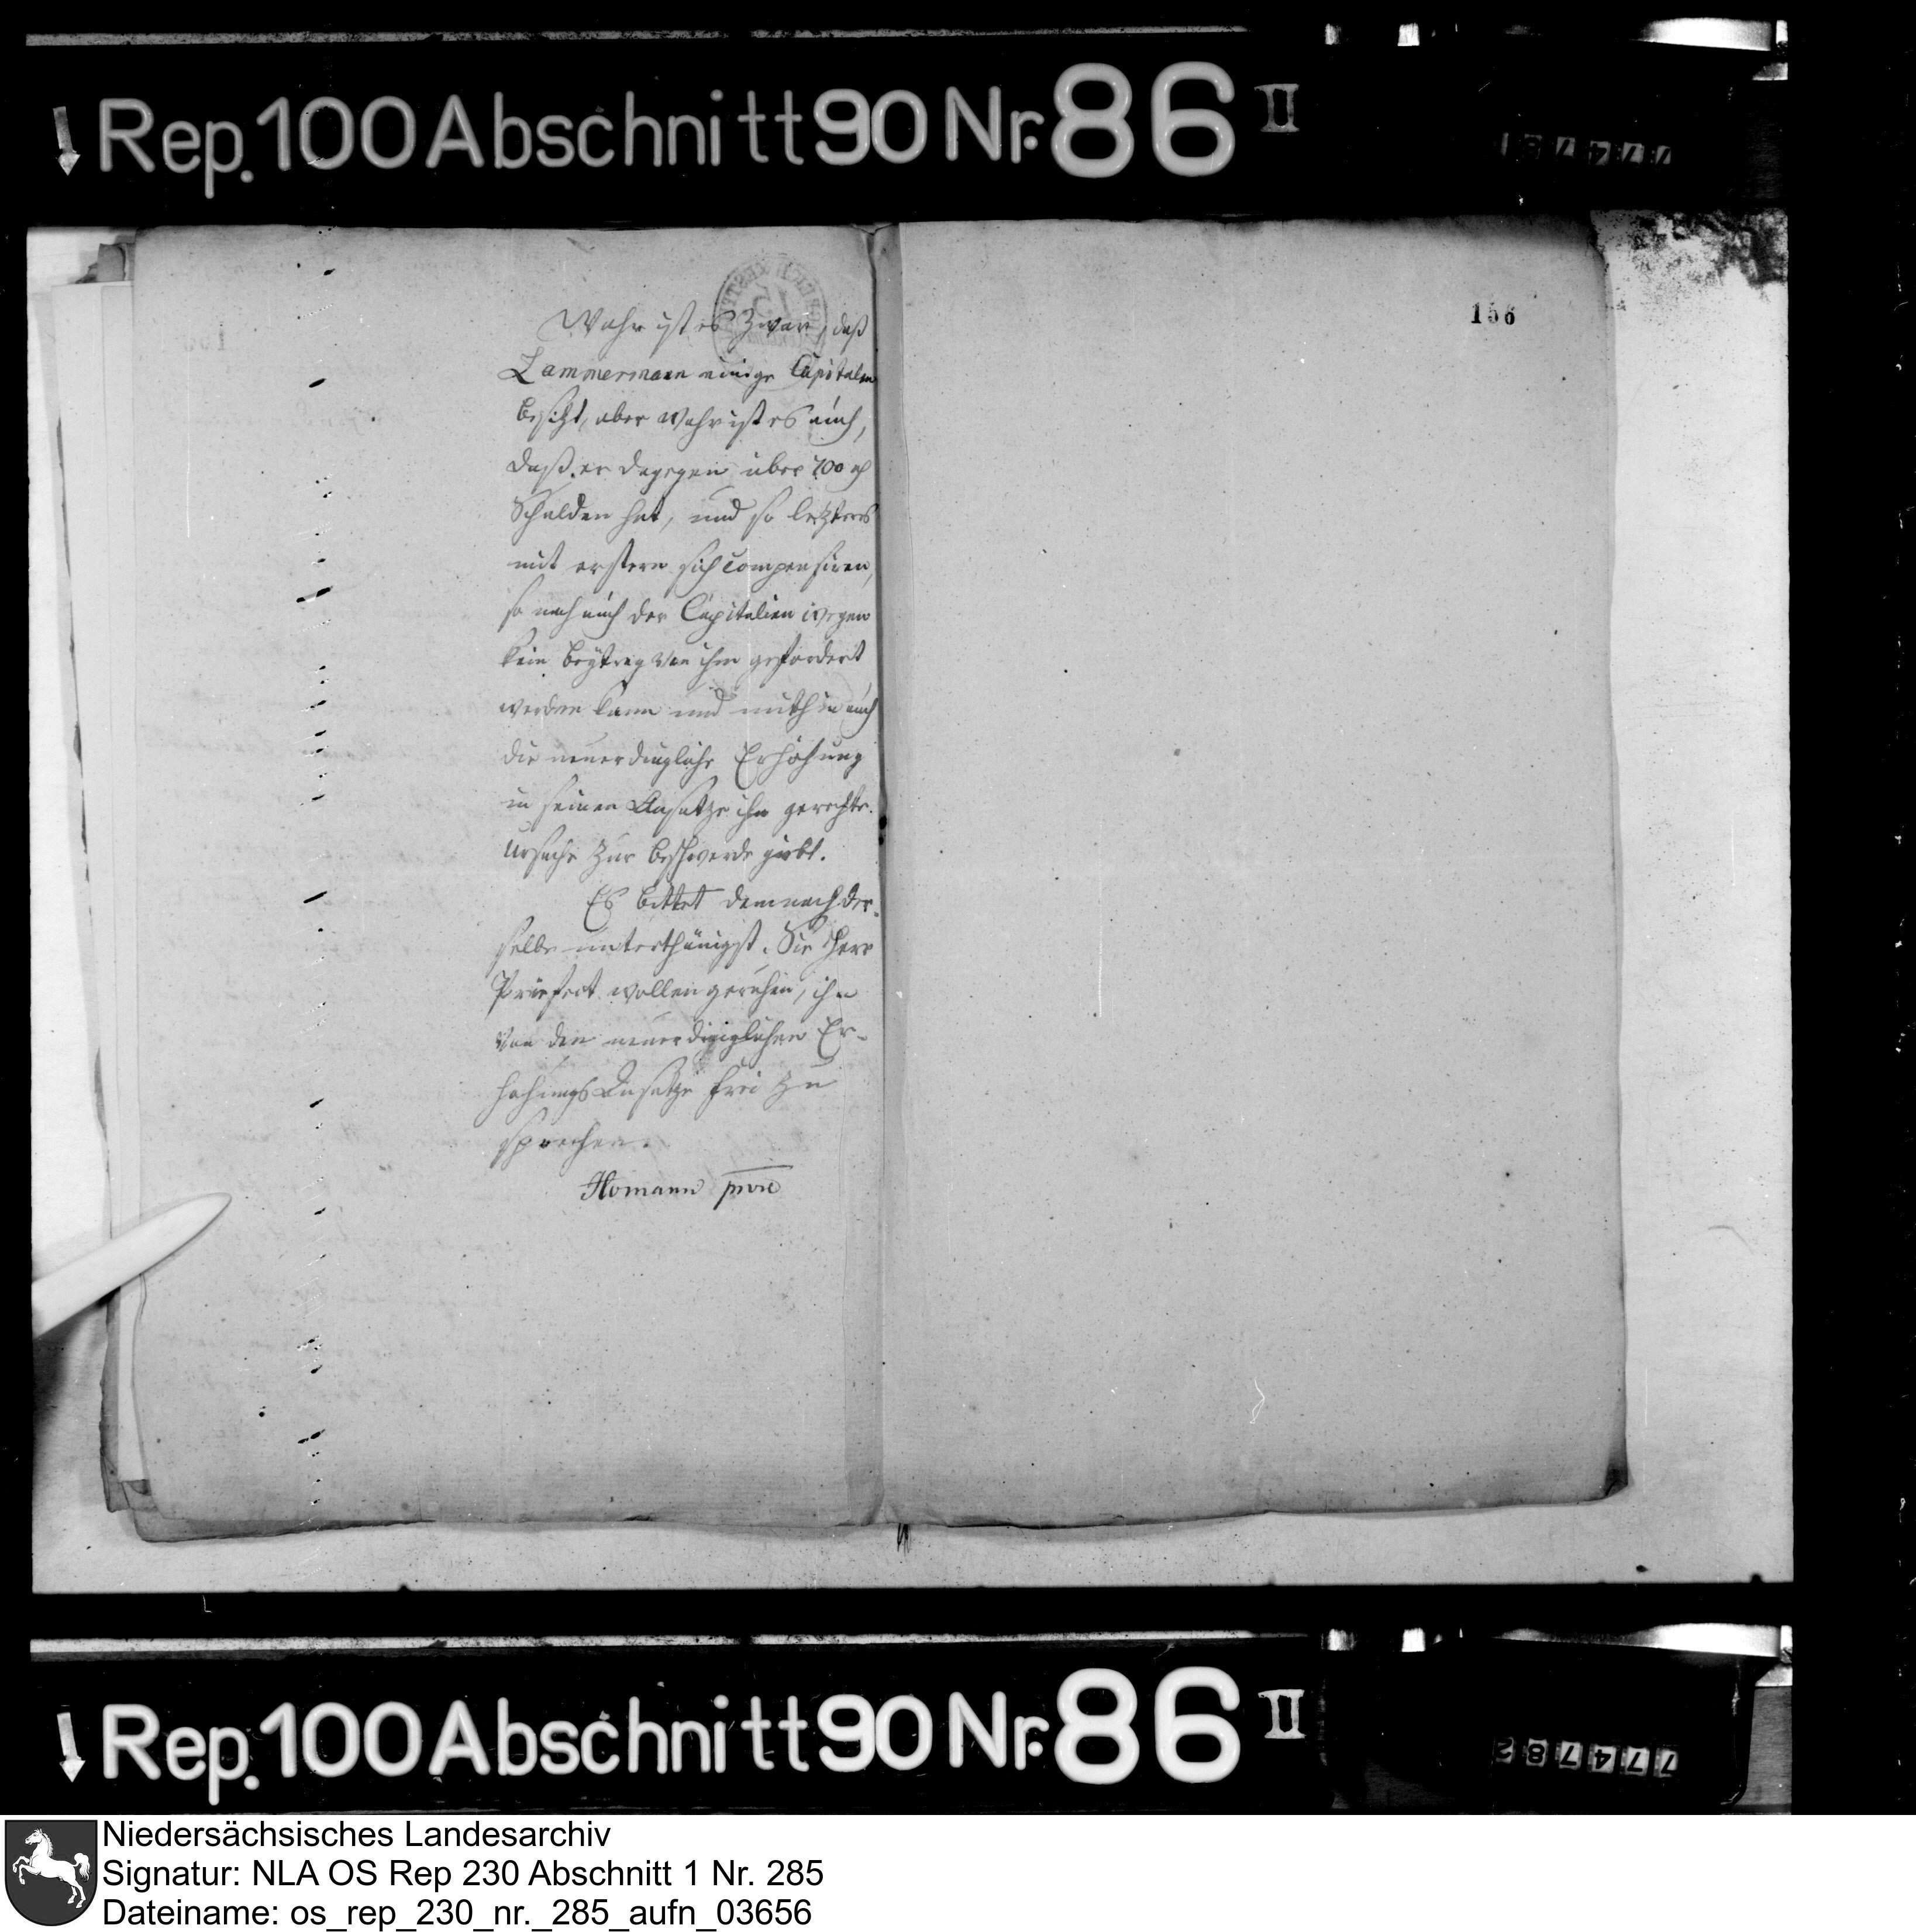 Rep. 100 Abschnitt 90 Nr. 86 II
156
Wahr ist es zwar, daß
Lammermann einige Capitalien
besitzt, aber wahr ist es auch,
daß er dagegen über 700 rh
Schulden hat, und so letzteres
mit erstern sich compensiren,
so nach auch der Capitalien wegen
kein Beytrag von ihm gefordert
werden kann und mithin auch
die neuerdingliche Erhöhung
in seinen Ansatze ihm gerechte
Ursache zur Beschwerde giebt.
Es bittet demnach der-
selbe unterthänigst. Sie Herr
Präfect wollen geruhen, ihn
von den neuerdinglichen Er-
höhungs Ansatze frei zu
sprechen.
Homann
Rep. 100 Abschnitt 90 Nr. 86 II
774782
Niedersächsisches Landesarchiv
Signatur: NLA OS Rep 230 Abschnitt 1 Nr. 285
Dateiname: os_rep_230_nr._285_aufn_03656